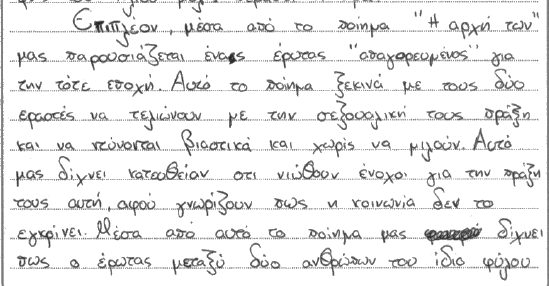 Επιπλέον, μέσα από το ποίημα "Η αρχή των"
μας παρουσιάζεται ένας έρωτας "απαγορευμένος" για
την τότε εποχή. Αυτό το ποίημα ξεκινά με τους δύο
εραστές να τελιώνουν με την σεξουαλική τους πράξη
και να ντύνονται βιαστικά και χωρίς να μιλούν. Αυτό
μας δίχνει κατευθείαν οτι νιώθουν ένοχοι για την πράξη
τους αυτή, αφού γνωρίζουν πως η κοινωνία δεν το
εγκρίνει. Μέσα από αυτό το ποίημα μας δίχνει
πως ο έρωτας μεταξύ δύο ανθρώπων του ίδιο φύλου